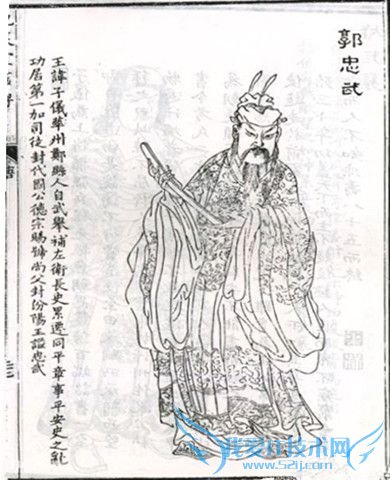 郭忠武
王諱子儀華州鄭縣人自武舉補左衛長史累遷同平章事平安史之亂
功居第一加司徒封代國公德宗賜號尚父封汾陽王謚忠武
我爱IT技术网
www.52ij.com